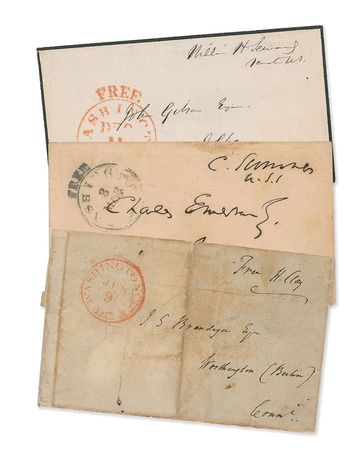 William H Seward
FREE
WASHINGT
DEC
11
John Gibson Esq
C. Sumner
U.S.S
FREE
WASHINGTO
Charles Emerson
Free H. Clay
WASHINGTON
JUN
9
J S Brandegee Esq
Worthington (Berlin)
Connt.